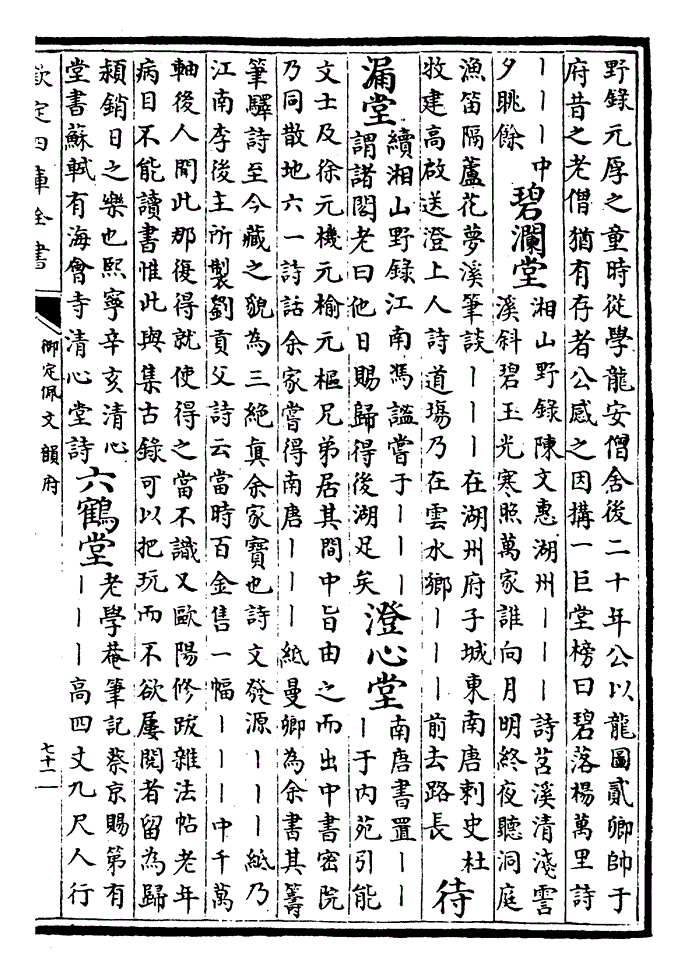 野錄元厚之童時從學龍安僧舍後二十年公以龍圖貳卿帥于
府昔之老僧猶有存者公感之因搆一巨堂榜曰碧落楊萬里詩
｜｜｜中
夕眺餘
碧瀾堂
湘山野錄陳文惠湖州｜｜｜詩苕溪清淺霅
溪斜碧玉光寒照萬家誰向月明終夜聽洞庭
漁笛隔蘆花夢溪筆談｜｜｜在湖州府子城東南唐刺史杜
牧建高啟送澄上人詩道塲乃在雲水鄉｜｜｜前去路長
待
漏堂
續湘山野錄江南馮謐嘗于｜｜｜
謂諸閣老曰他日賜歸得後湖足矣
澄心堂
南唐書置｜｜
｜于内苑引能
文士及徐元機元榆元樞兄弟居其間中旨由之而出中書密院
乃同散地六一詩話余家嘗得南唐｜｜｜紙曼卿為余書其籌
筆驛詩至今藏之貌為三絕真余家寶也詩文發源｜｜｜紙乃
江南李後主所製劉貢父詩云當時百金售一幅｜｜｜中千萬
軸後人聞此那復得就使得之當不識又歐陽修跋雜法帖老年
病目不能讀書惟此與集古錄可以把玩而不欲屢閱者留為歸
潁銷日之樂也熙寧辛亥清心
堂書蘇軾有海會寺清心堂詩
六鶴堂
老學菴筆記蔡京賜第有
｜｜｜高四丈九尺人行
欽定四庫全書
御定佩文韻府
七十一